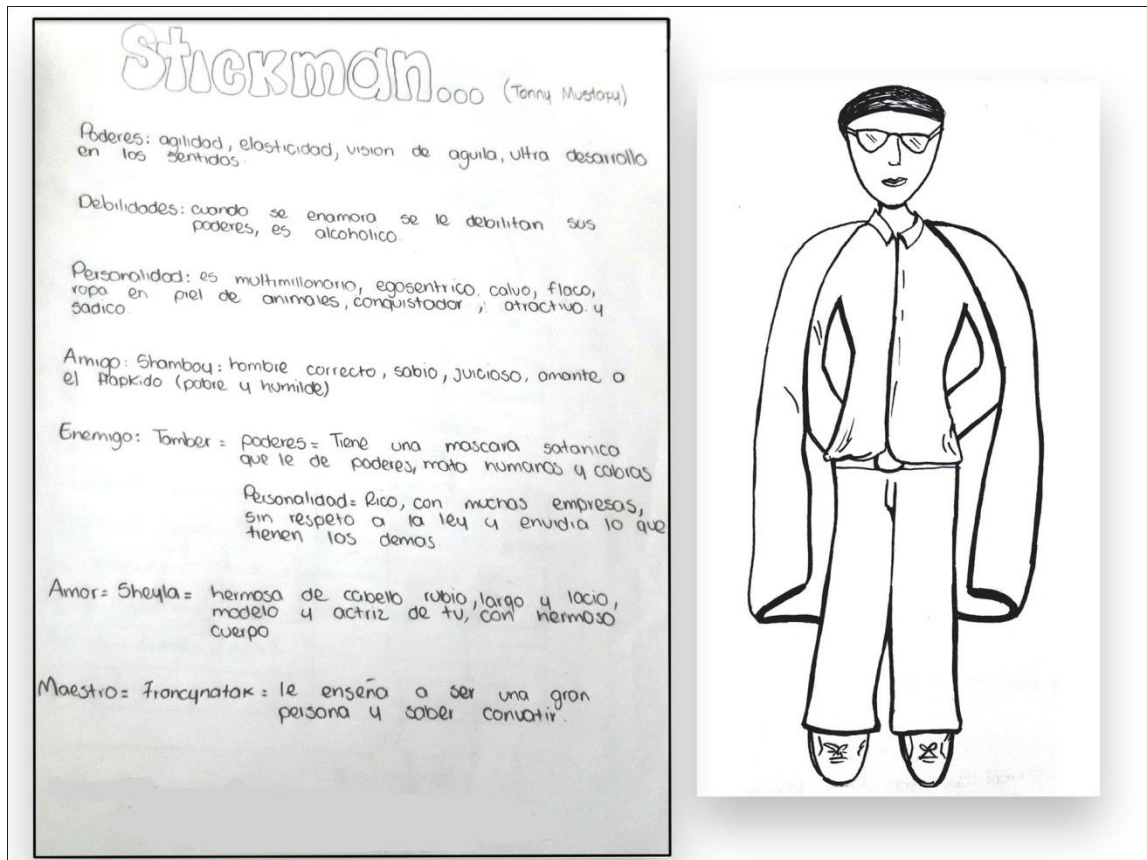 Stickman... (Tonny Mustapu)
Poderes: agilidad, elasticidad, vision de aguila, ultra desarrollo
en los sentidos.
Debilidades: cuando se enamora se le debilitan sus
poderes, es alcoholico.
Personalidad: es multimillonario, egosentrico, calvo, flaco,
ropa en piel de animales, conquistador, atractivo y
sadico.
Amigo: Shambou: hombre correcto, sabio, juicioso, amante a
el Hapkido (pobre y humilde)
Enemigo: Tamber = poderes = Tiene una mascara satanica
que le de poderes, mata humanos y cabras
Personalidad = Rico, con muchas empresas,
sin respeto a la ley y envidia lo que
tienen los demas
Amor = Sheyla = hermosa de cabello rubio, largo y lacio,
modelo y actriz de tv, con hermoso
cuerpo
Maestro = Francynatak = le enseña a ser una gran
persona y saber convatir.